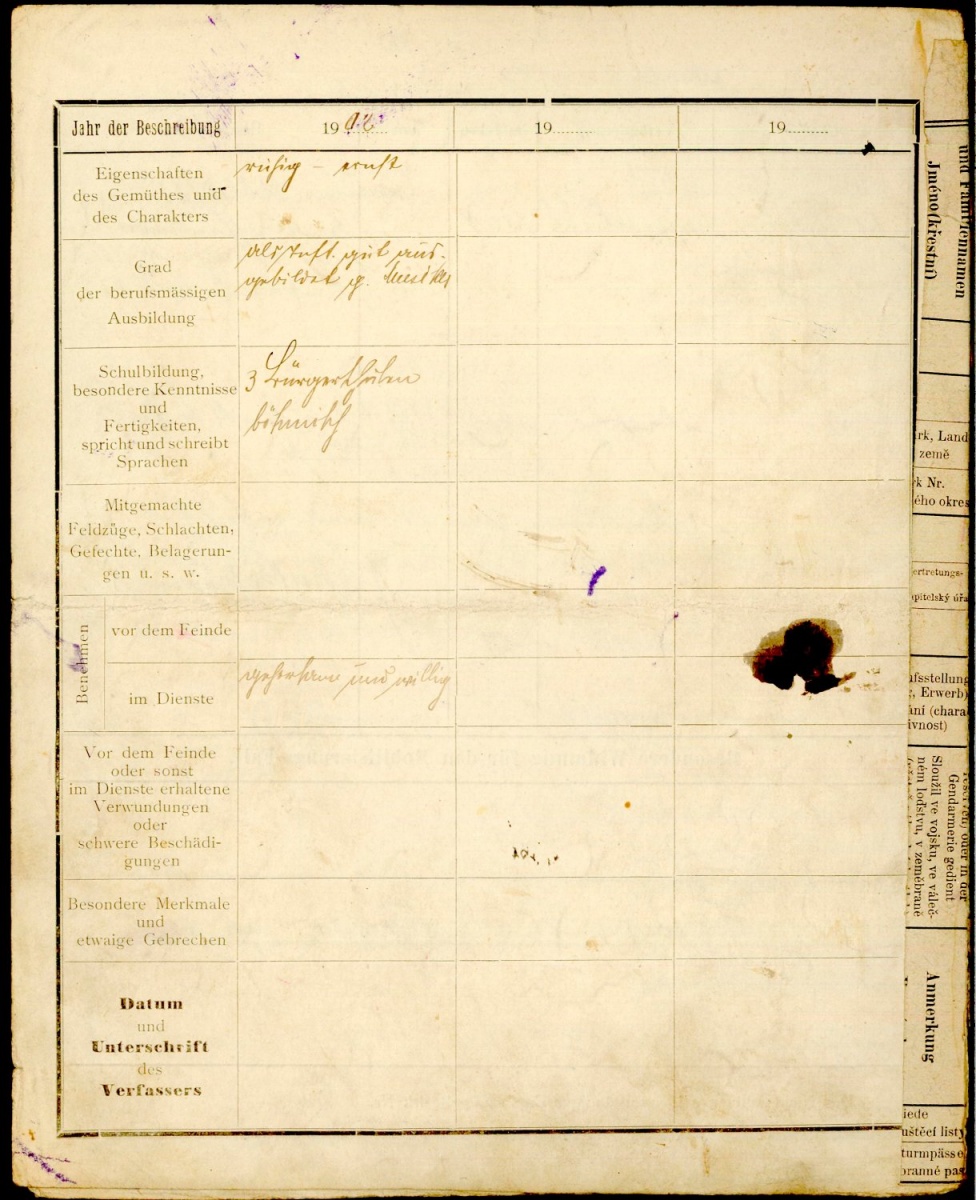 Jahr der Beschreibung
19 02
19
19
Eigenschaften
des Gemüthes und
des Charakters
ruhig – ernst
Grad
der berufsmässigen
Ausbildung
als Inft. gut aus-
gebildet g.
Schulbildung,
besondere Kenntnisse
und
Fertigkeiten,
spricht und schreibt
Sprachen
3 Bürgerschulen
böhmisch
Mitgemachte
Feldzüge, Schlachten,
Gefechte, Belagerun-
gen u. s. w.
Benehmen
vor dem Feinde
im Dienste
gehorsam und willig
Vor dem Feinde
oder sonst
im Dienste erhaltene
Verwundungen
oder
schwere Beschädi-
gungen
Besondere Merkmale
und
etwaige Gebrechen
Datum
und
Unterschrift
des
Verfassers
und Familiennamen
Jméno (křestní)
rk, Land
země
k Nr.
ého okres
ertretungs-
pitelský úřa
fsstellung
g, Erwerb)
ání (chara
ivnost)
reserven) oder in der
Gendarmerie gedient
Sloužil ve vojsku, ve váleč-
ném loďstvu, v zeměbraně
Anmerkung
iede
uštěcí listy
turmpässe
branné pas